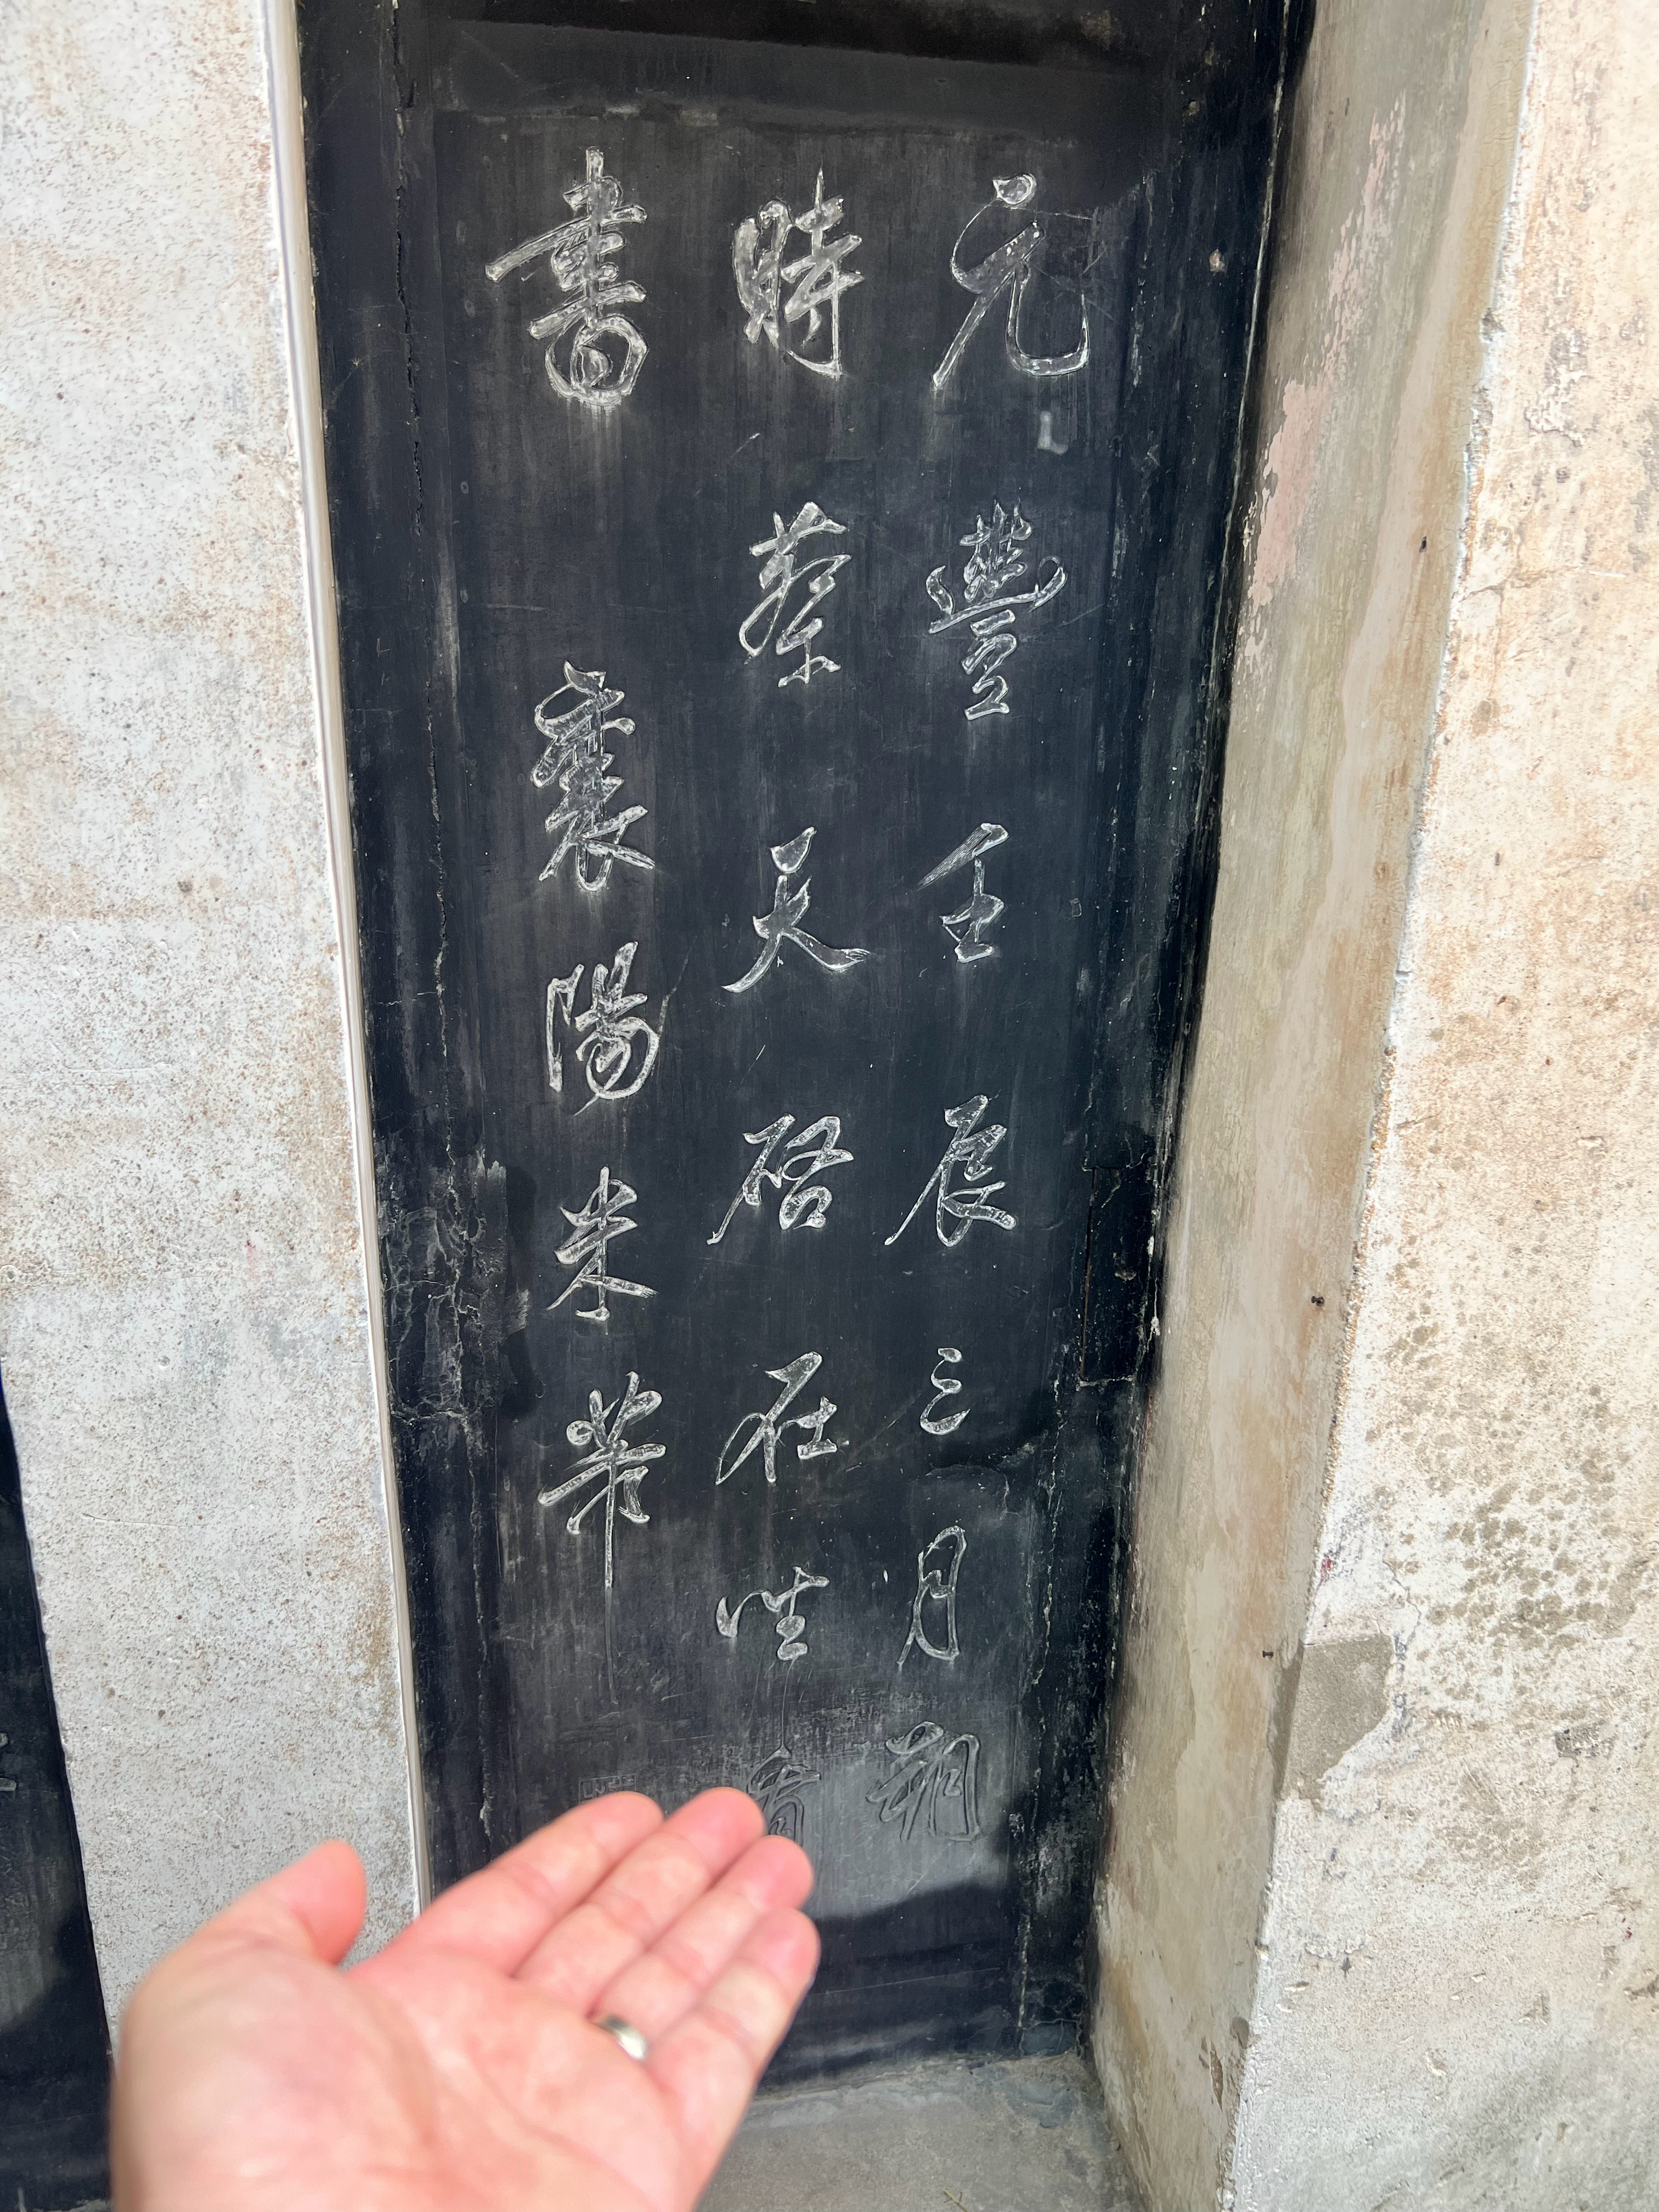 元豐壬辰三月朔
時蔡天啓在坐看
書 襄陽米芾